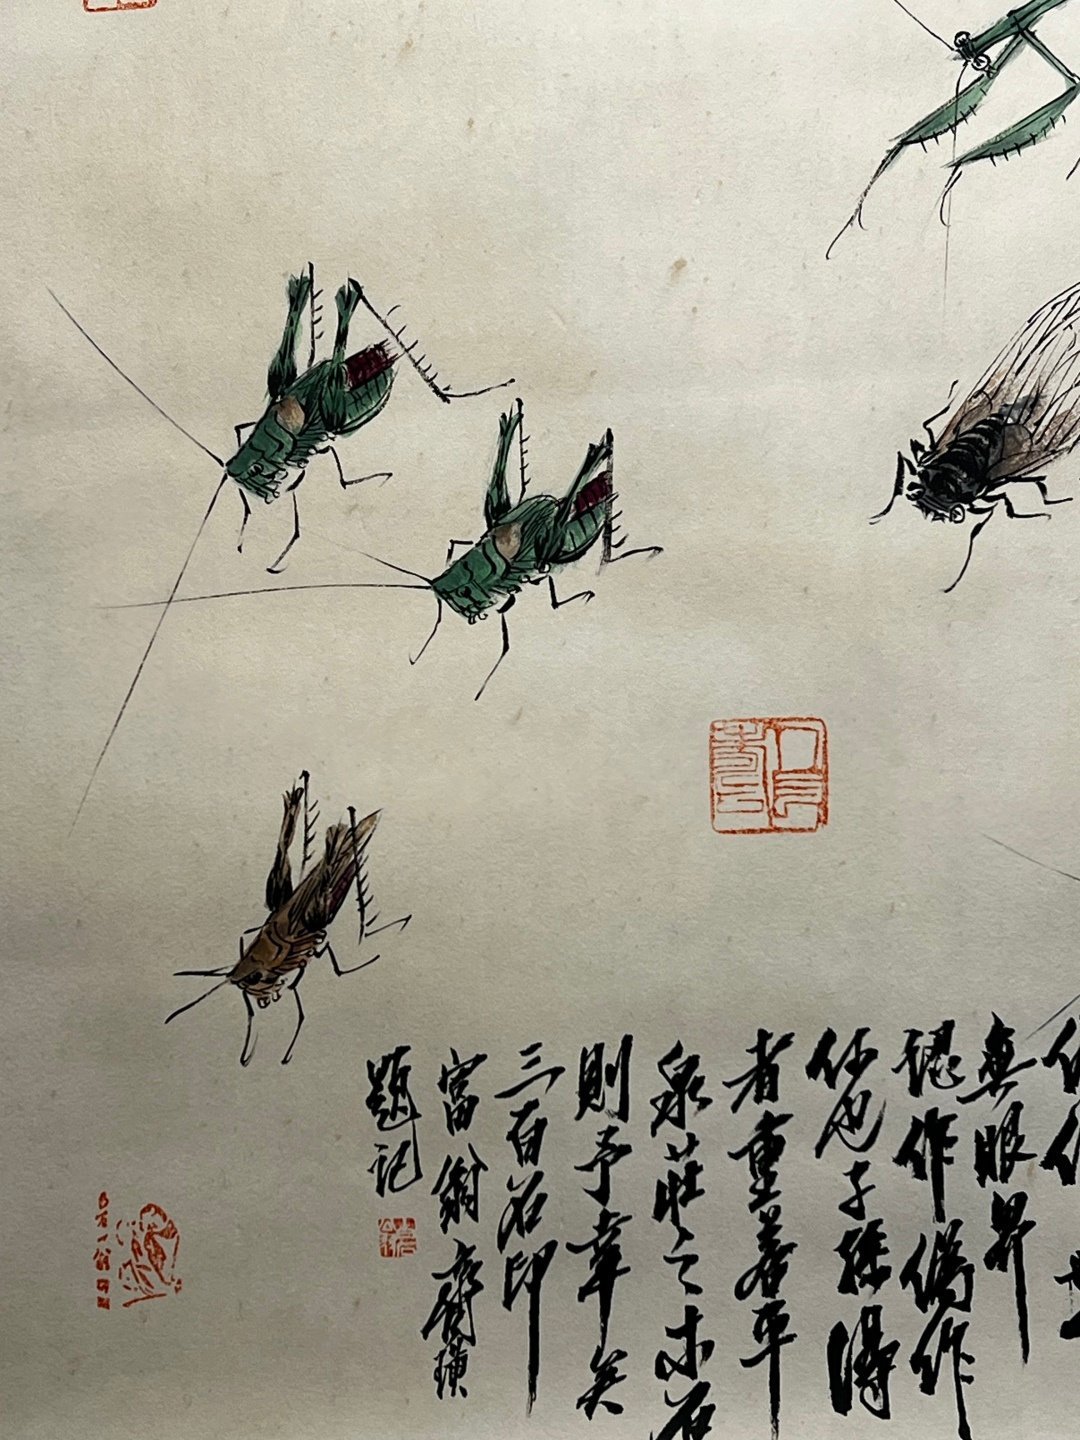 無眼界
認作偽作
何也子孫得
者重若平
泉莊之木石
則予幸矣
三百石印
富翁齊璜
題記